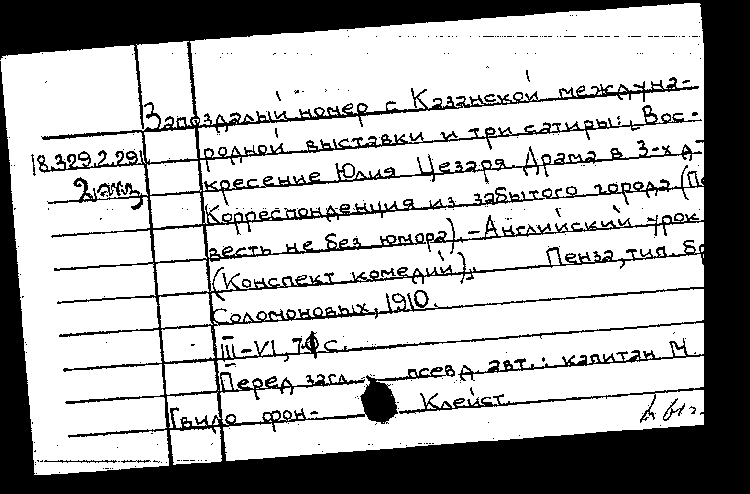 Запоздалый номер с Казанской междуна-
родной выставки и три сатиры: „Вос-
18.329.2.291
кресение Юлия Цезаря. Драма в 3-х д
2 экз
Корреспонденция из забытого города (По
весть не без юмора). - Английский урок
(Конспект комедий)". Пенза, тип. бр
Соломоновых, 1910.
III-VI, 70 с.
Перед загл. псевд. авт.: капитан М.
Гвидо фон- Клейст.